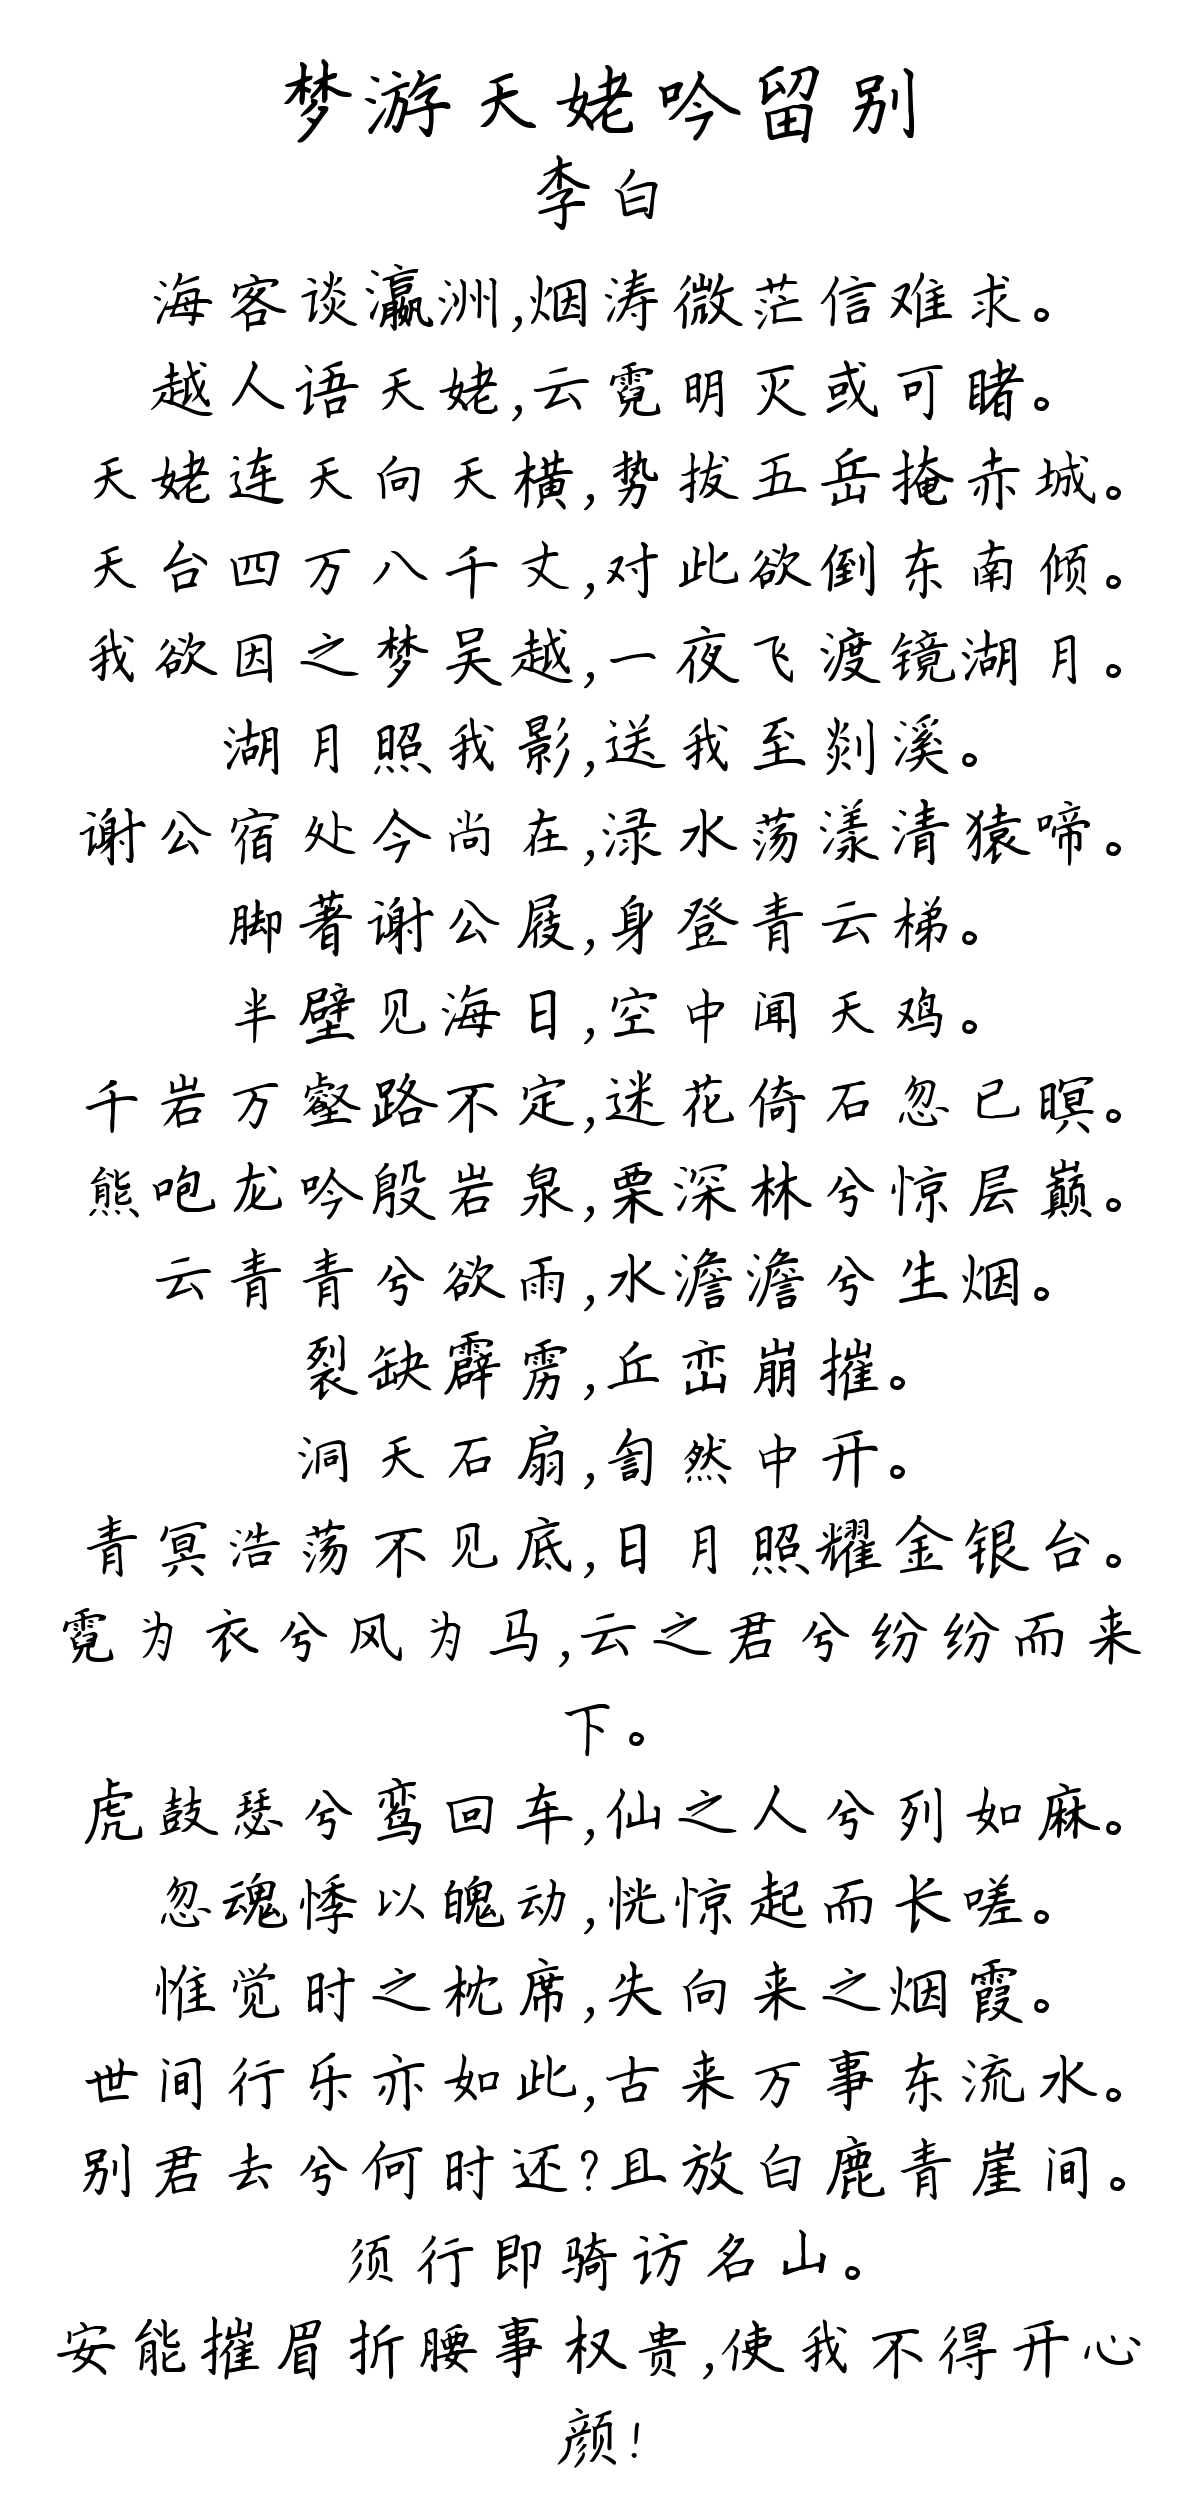 梦游天姥吟留别
李白
海客谈瀛洲,烟涛微茫信难求。
越人语天姥,云霓明灭或可睹。
天姥连天向天横,势拔五岳掩赤城。
天台四万八千丈,对此欲倒东南倾。
我欲因之梦吴越,一夜飞渡镜湖月。
湖月照我影,送我至剡溪。
谢公宿处今尚在,渌水荡漾清猿啼。
脚著谢公屐,身登青云梯。
半壁见海日,空中闻天鸡。
千岩万壑路不定,迷花倚石忽已暝。
熊咆龙吟殷岩泉,栗深林兮惊层巅。
云青青兮欲雨,水澹澹兮生烟。
裂缺霹雳,丘峦崩摧。
洞天石扇,訇然中开。
青冥浩荡不见底,日月照耀金银台。
霓为衣兮风为马,云之君兮纷纷而来
下。
虎鼓瑟兮鸾回车,仙之人兮列如麻。
忽魂悸以魄动,恍惊起而长嗟。
惟觉时之枕席,失向来之烟霞。
世间行乐亦如此,古来万事东流水。
别君去兮何时还?且放白鹿青崖间。
须行即骑访名山。
安能摧眉折腰事权贵,使我不得开心
颜!